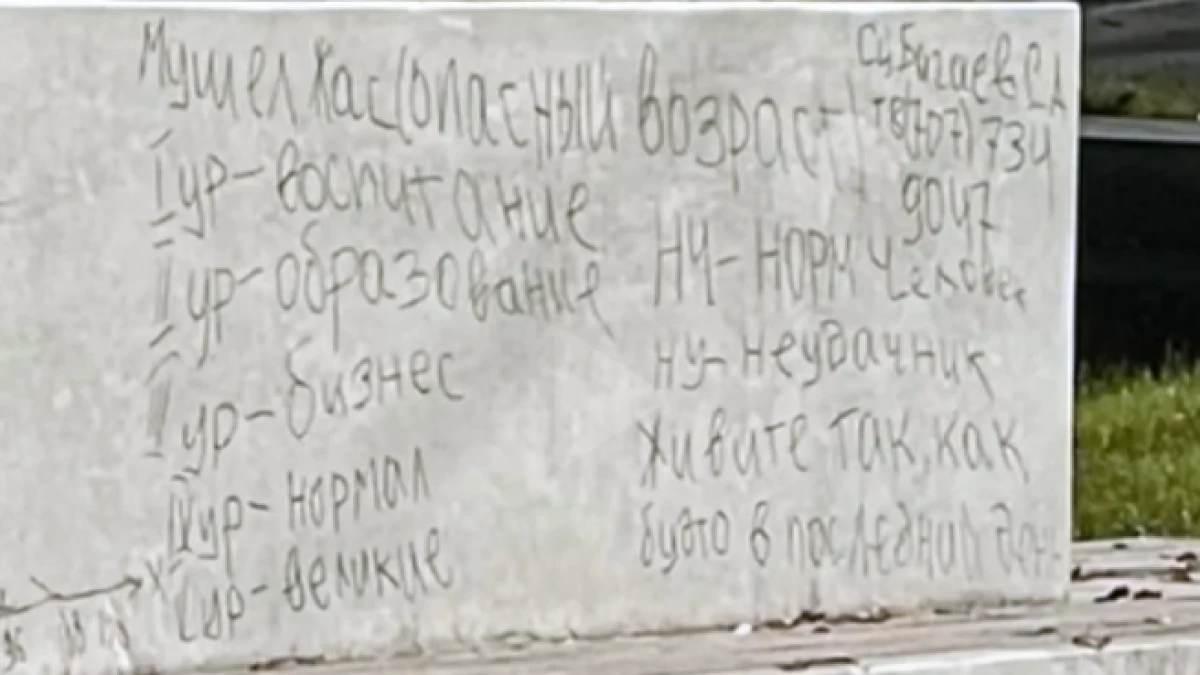 Мушел Жас (опасный возраст)
I ур - воспитание
II ур - образование
III ур - бизнес
IV ур - нормал
V ур - великие
(707) 734
9047
НЧ - НОРМ Человек
НУ - неудачник
Живите так, как
будто в последний день
X